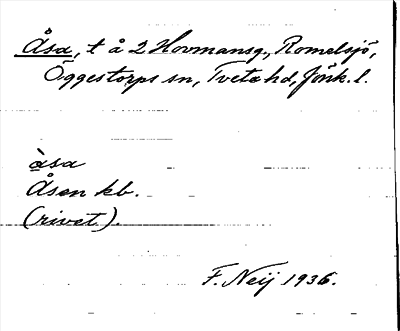 Åsa, t å 2 Hovmansg., Romelsjö,
Öggestorps sn, Tveta hd, Jönk. l.
àsa
Åsen kb.
(rivet).
F. Neij 1936.